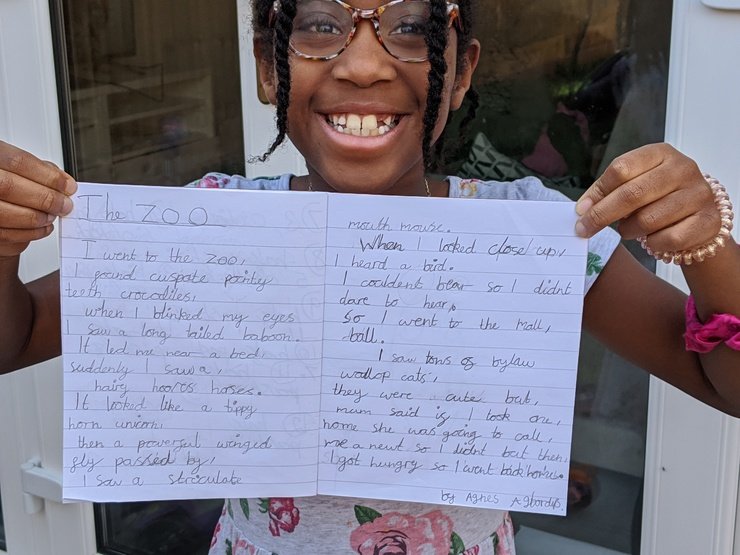 The Zoo
I went to the zoo,
I found cuspate pointey
teeth crocodiles,
when I blinked my eyes
I saw a long tailed baboon.
It led me near a bed,
suddenly I saw a,
hairy horses.
It looked like a tippy
horn unicorn,
then a powerful winged
fly passed by,
I saw a striculate
mouth mouse.
When I looked close up,
I heard a bird.
I couldent bear so I didnt
dare to hear,
So I went to the Mall,
ball.
I saw tons of bylaw
wallop cats,
they were cute but,
mum said if I look one,
home she was going to call,
me a newt so I didnt but then,
I got hungry so I went back home.
by Agnes Agbordys.